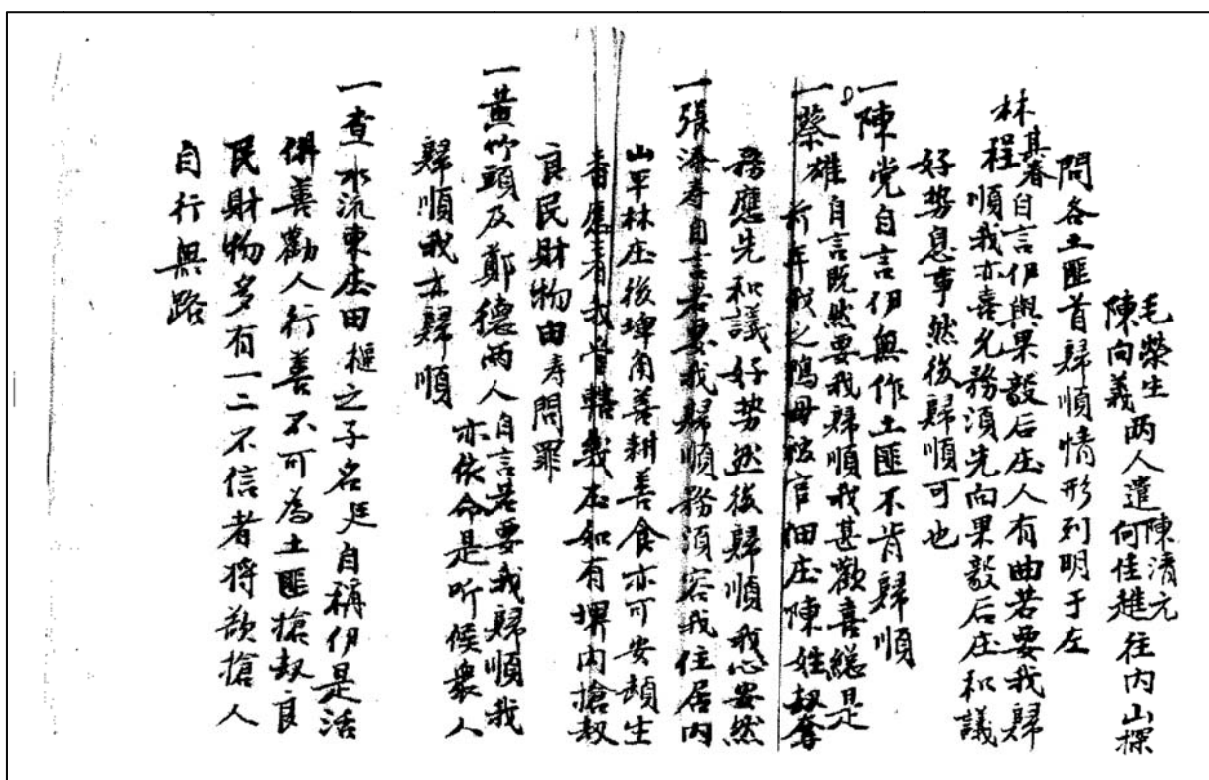 毛榮生 陳向義 两人遣 陳清元 何佳 趖往内山探
問各土匪首歸順情形列明于左
林其春 程 自言伊與果毅后庄人有曲若要我歸
順我亦喜允務須先向果毅后庄和議
好势息事然後歸順可也
一陳党自言伊無作土匪不肯歸順
一蔡雄自言既然要我歸順我甚歡喜總是
前年我之鴨母被官佃庄陳姓刼奪
務應先和議好势然後歸順我心安然
一張添壽自言若要我歸順務須容我住居内
山平林庄後埤角善耕善食亦可安頓生
香應有我管轄幾庄如有界内搶刼
良民財物由壽問罪
一黄竹頭及鄭德两人自言若要我歸順我
亦依命是听候衆人
歸順我亦歸順
一查水流東庄田樞之子名廷自稱伊是活
佛善勸人行善不可為土匪搶刼良
民財物多有一二不信者將欲搶人
自行無路